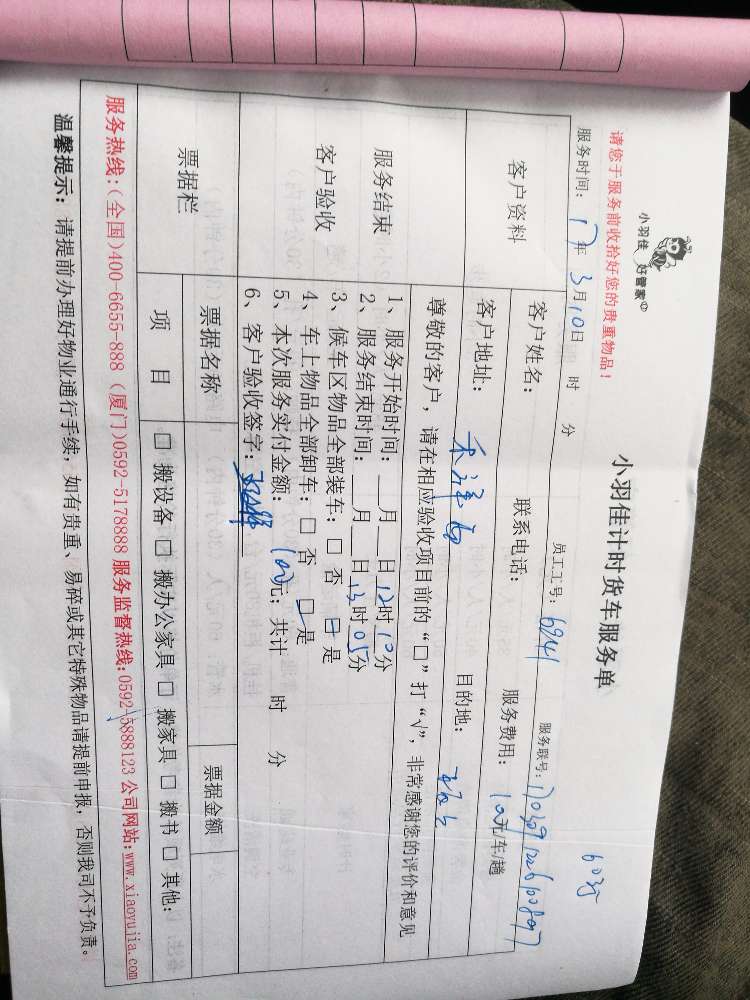 小羽佳 好管家
小羽佳计时货车服务单
60
请您于服务前收拾好您的贵重物品!
员工工号: 6941 服务联号:
服务时间: 17年 3月 10日 时 分
客户资料
客户姓名: 联系电话: 服务费用: 100元/车趟
客户地址: 禾祥西 目的地:
服务结束
客户验收
尊敬的客户, 请在相应验收项目前的“□”打“√”, 非常感谢您的评价和意见
1、服务开始时间: __月__日12时10分
2、服务结束时间: __月__日13时05分
3、候车区物品全部装车: □ 否 □ 是
4、车上物品全部卸车: □ 否 □ 是
5、本次服务实付金额: 100元; 共计 时 分
6、客户验收签字:
票据栏
票据名称 票据金额
项 目 □ 搬设备 □ 搬办公家具 □ 搬家具 □ 搬书 □ 其他:
服务热线:(全国)400-6655-888 (厦门)0592-5178888 服务监督热线:0592-5888123 公司网站:www.xiaoyujia.com
温馨提示: 请提前办理好物业通行手续, 如有贵重、易碎或其它特殊物品请提前申报, 否则我司不予负责。